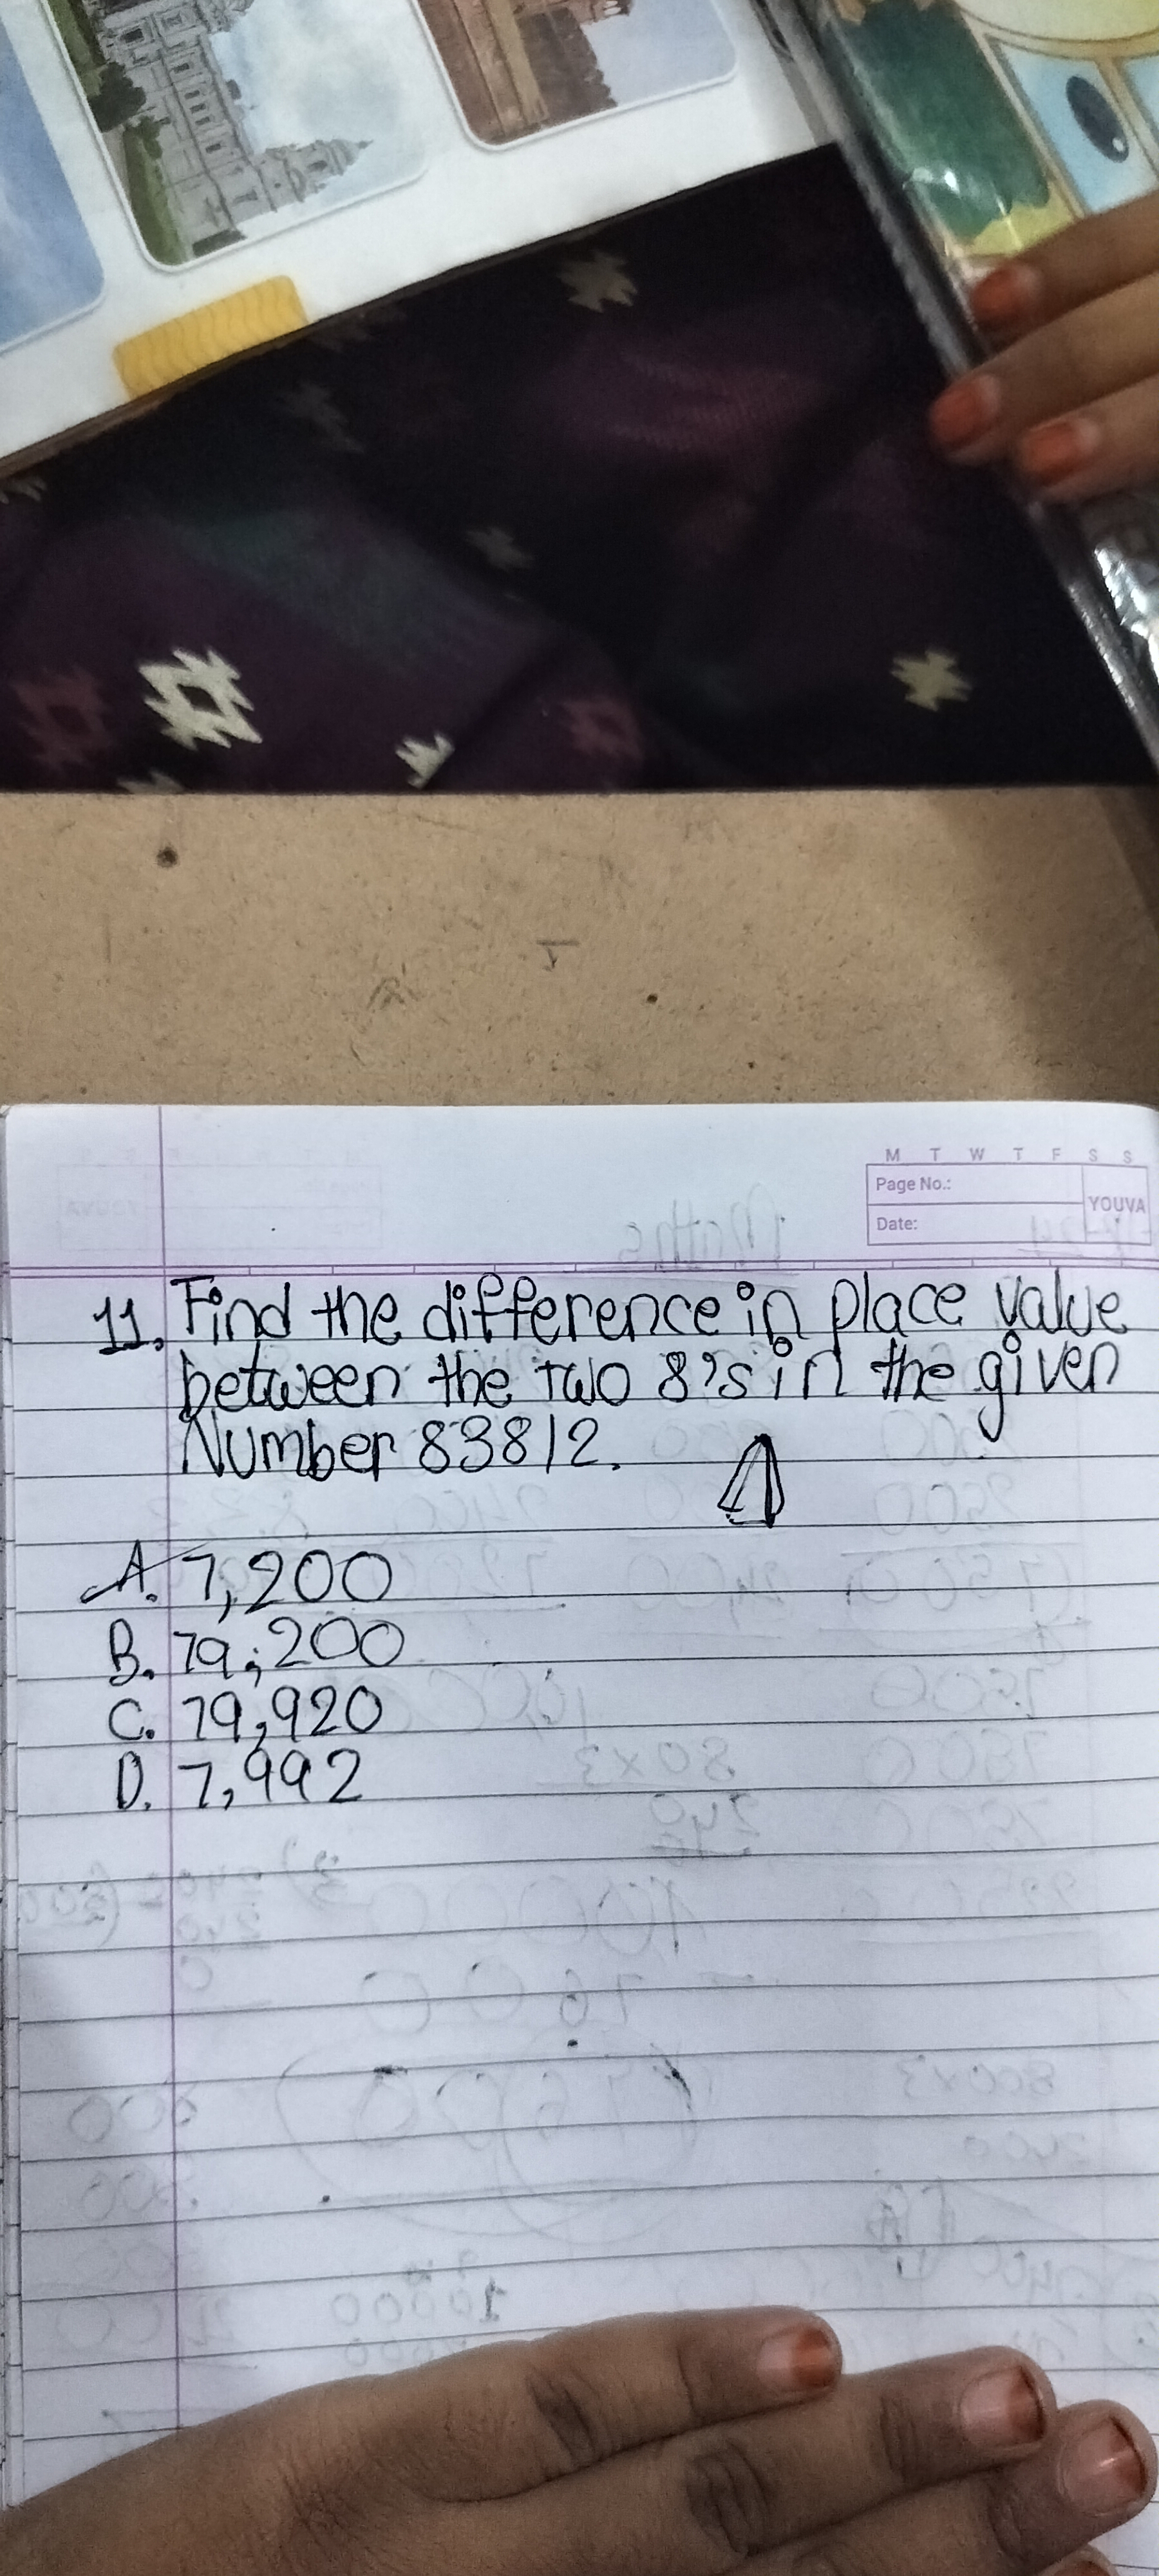 M T W T F S S
Page No.:
YOUVA
Date:
11. Find the difference in place value
between the two 8's in the given
Number 83812.
A. 7,200
B. 79,200
C. 79,920
D. 7,992